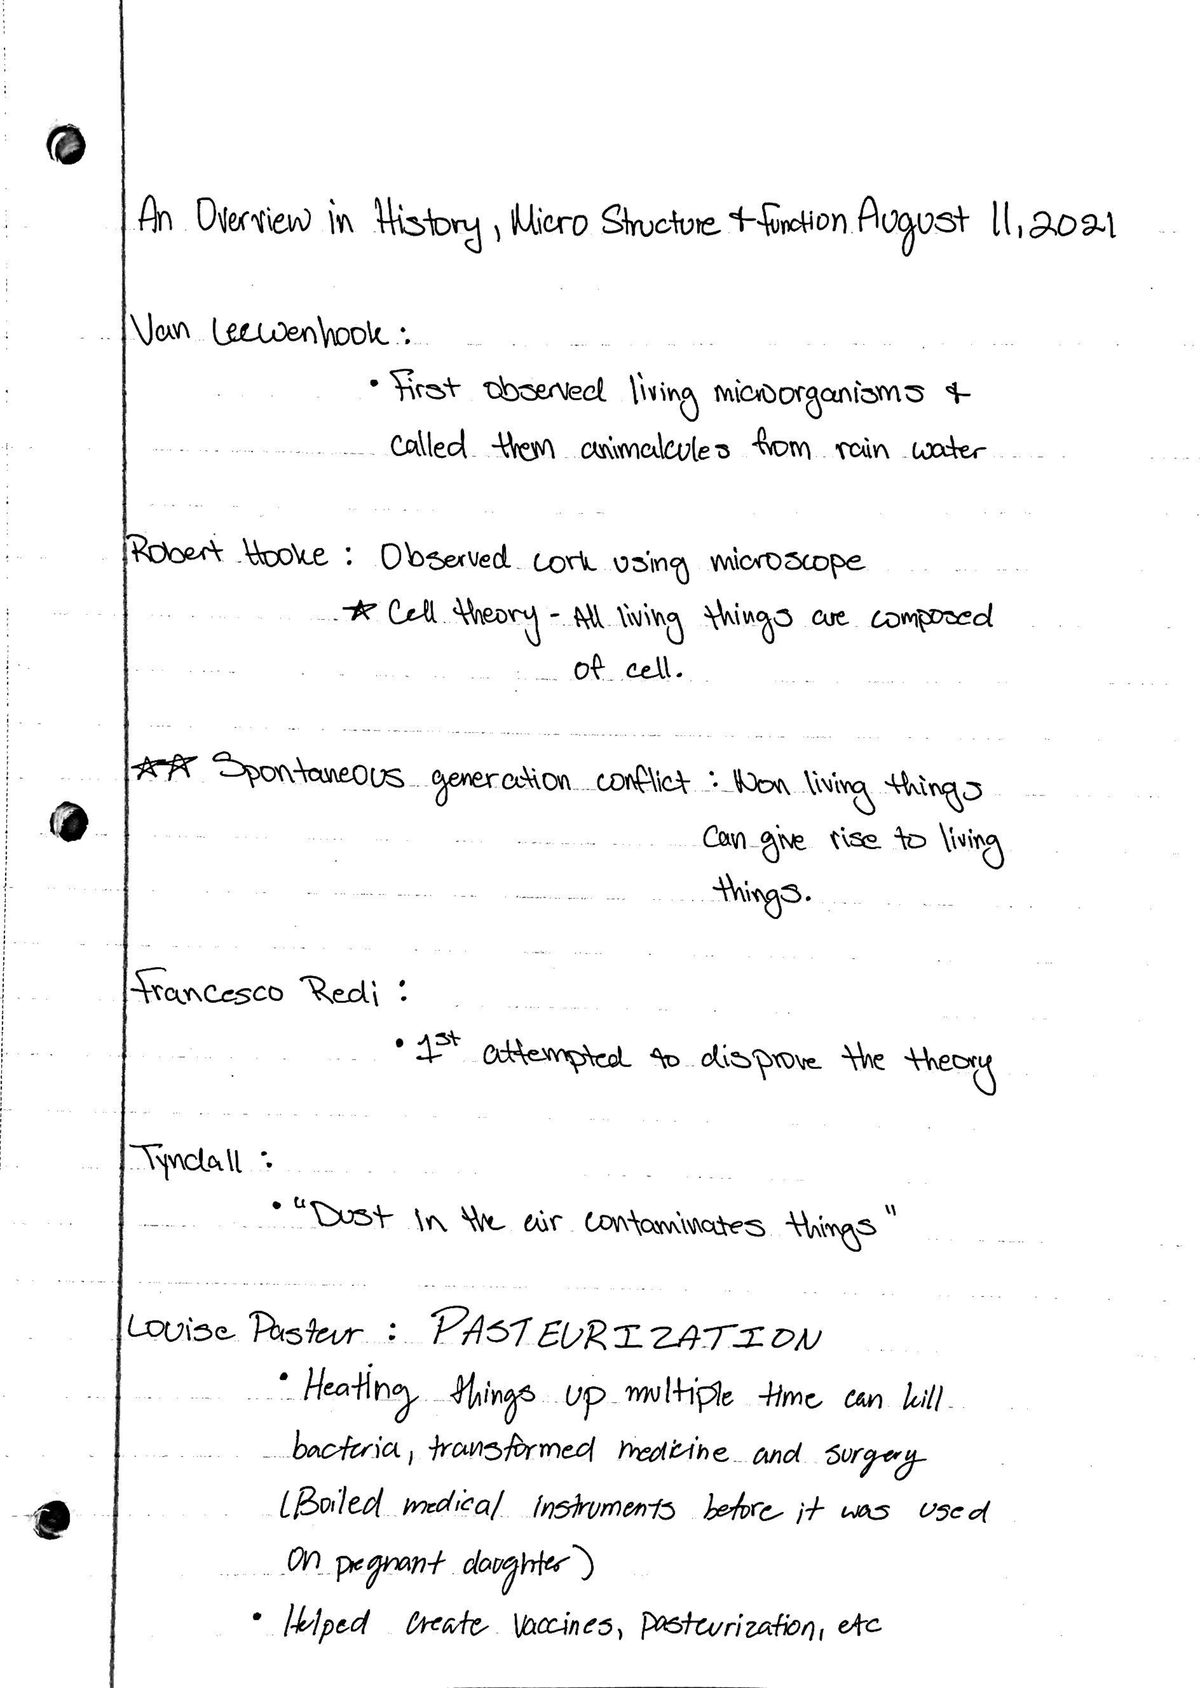 An Overview in History, Micro Structure + function August 11, 2021
Van Leewenhook :
• First observed living microorganisms +
called them animalcules from rain water
Robert Hooke : Observed cork using microscope
☆ Cell theory - All living things are composed
of cell.
☆☆ Spontaneous generation conflict : Non living things
can give rise to living
things.
Francesco Redi :
• 1st attempted to disprove the theory
Tyndall :
• "Dust in the air contaminates things"
Louise Pasteur : PASTEURIZATION
• Heating things up multiple time can kill
bacteria, transformed medicine and surgery
(Boiled medical instruments before it was used
on pregnant daughter)
• Helped create vaccines, pasteurization, etc